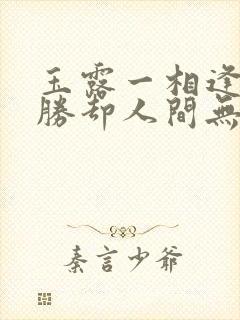 玉露一相逢
勝却人間無
秦言少爷